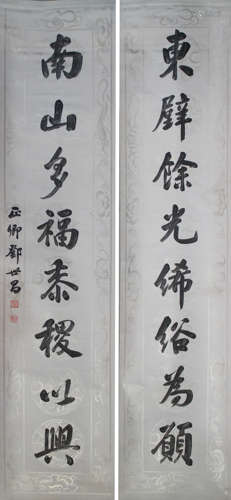 東壁餘光絺綌為顧
南山多福黍稷以興
正卿鄧世昌